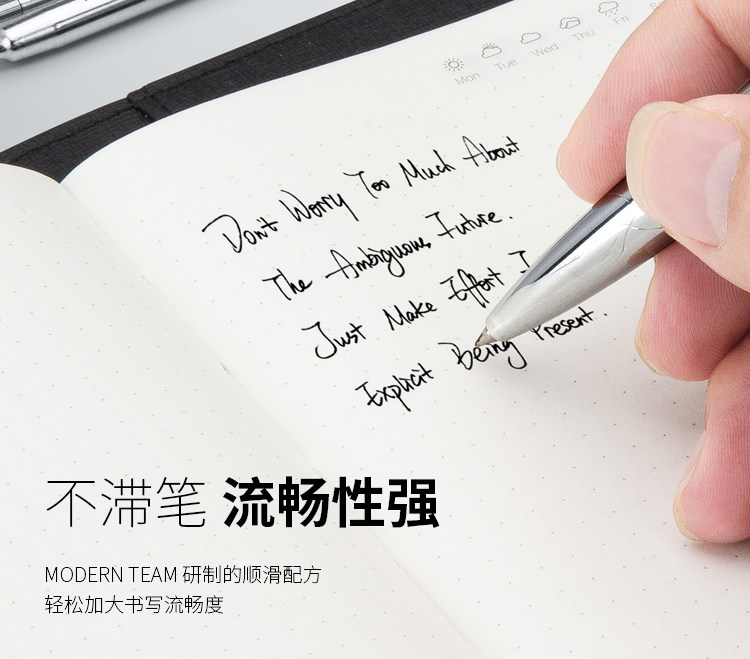 Mon Tue Wed Thu Fri
Don't Worry Too Much About
The Ambiguous Future.
Just Make Effort
Explicit Being Present.
不滞笔 流畅性强
MODERN TEAM 研制的顺滑配方
轻松加大书写流畅度